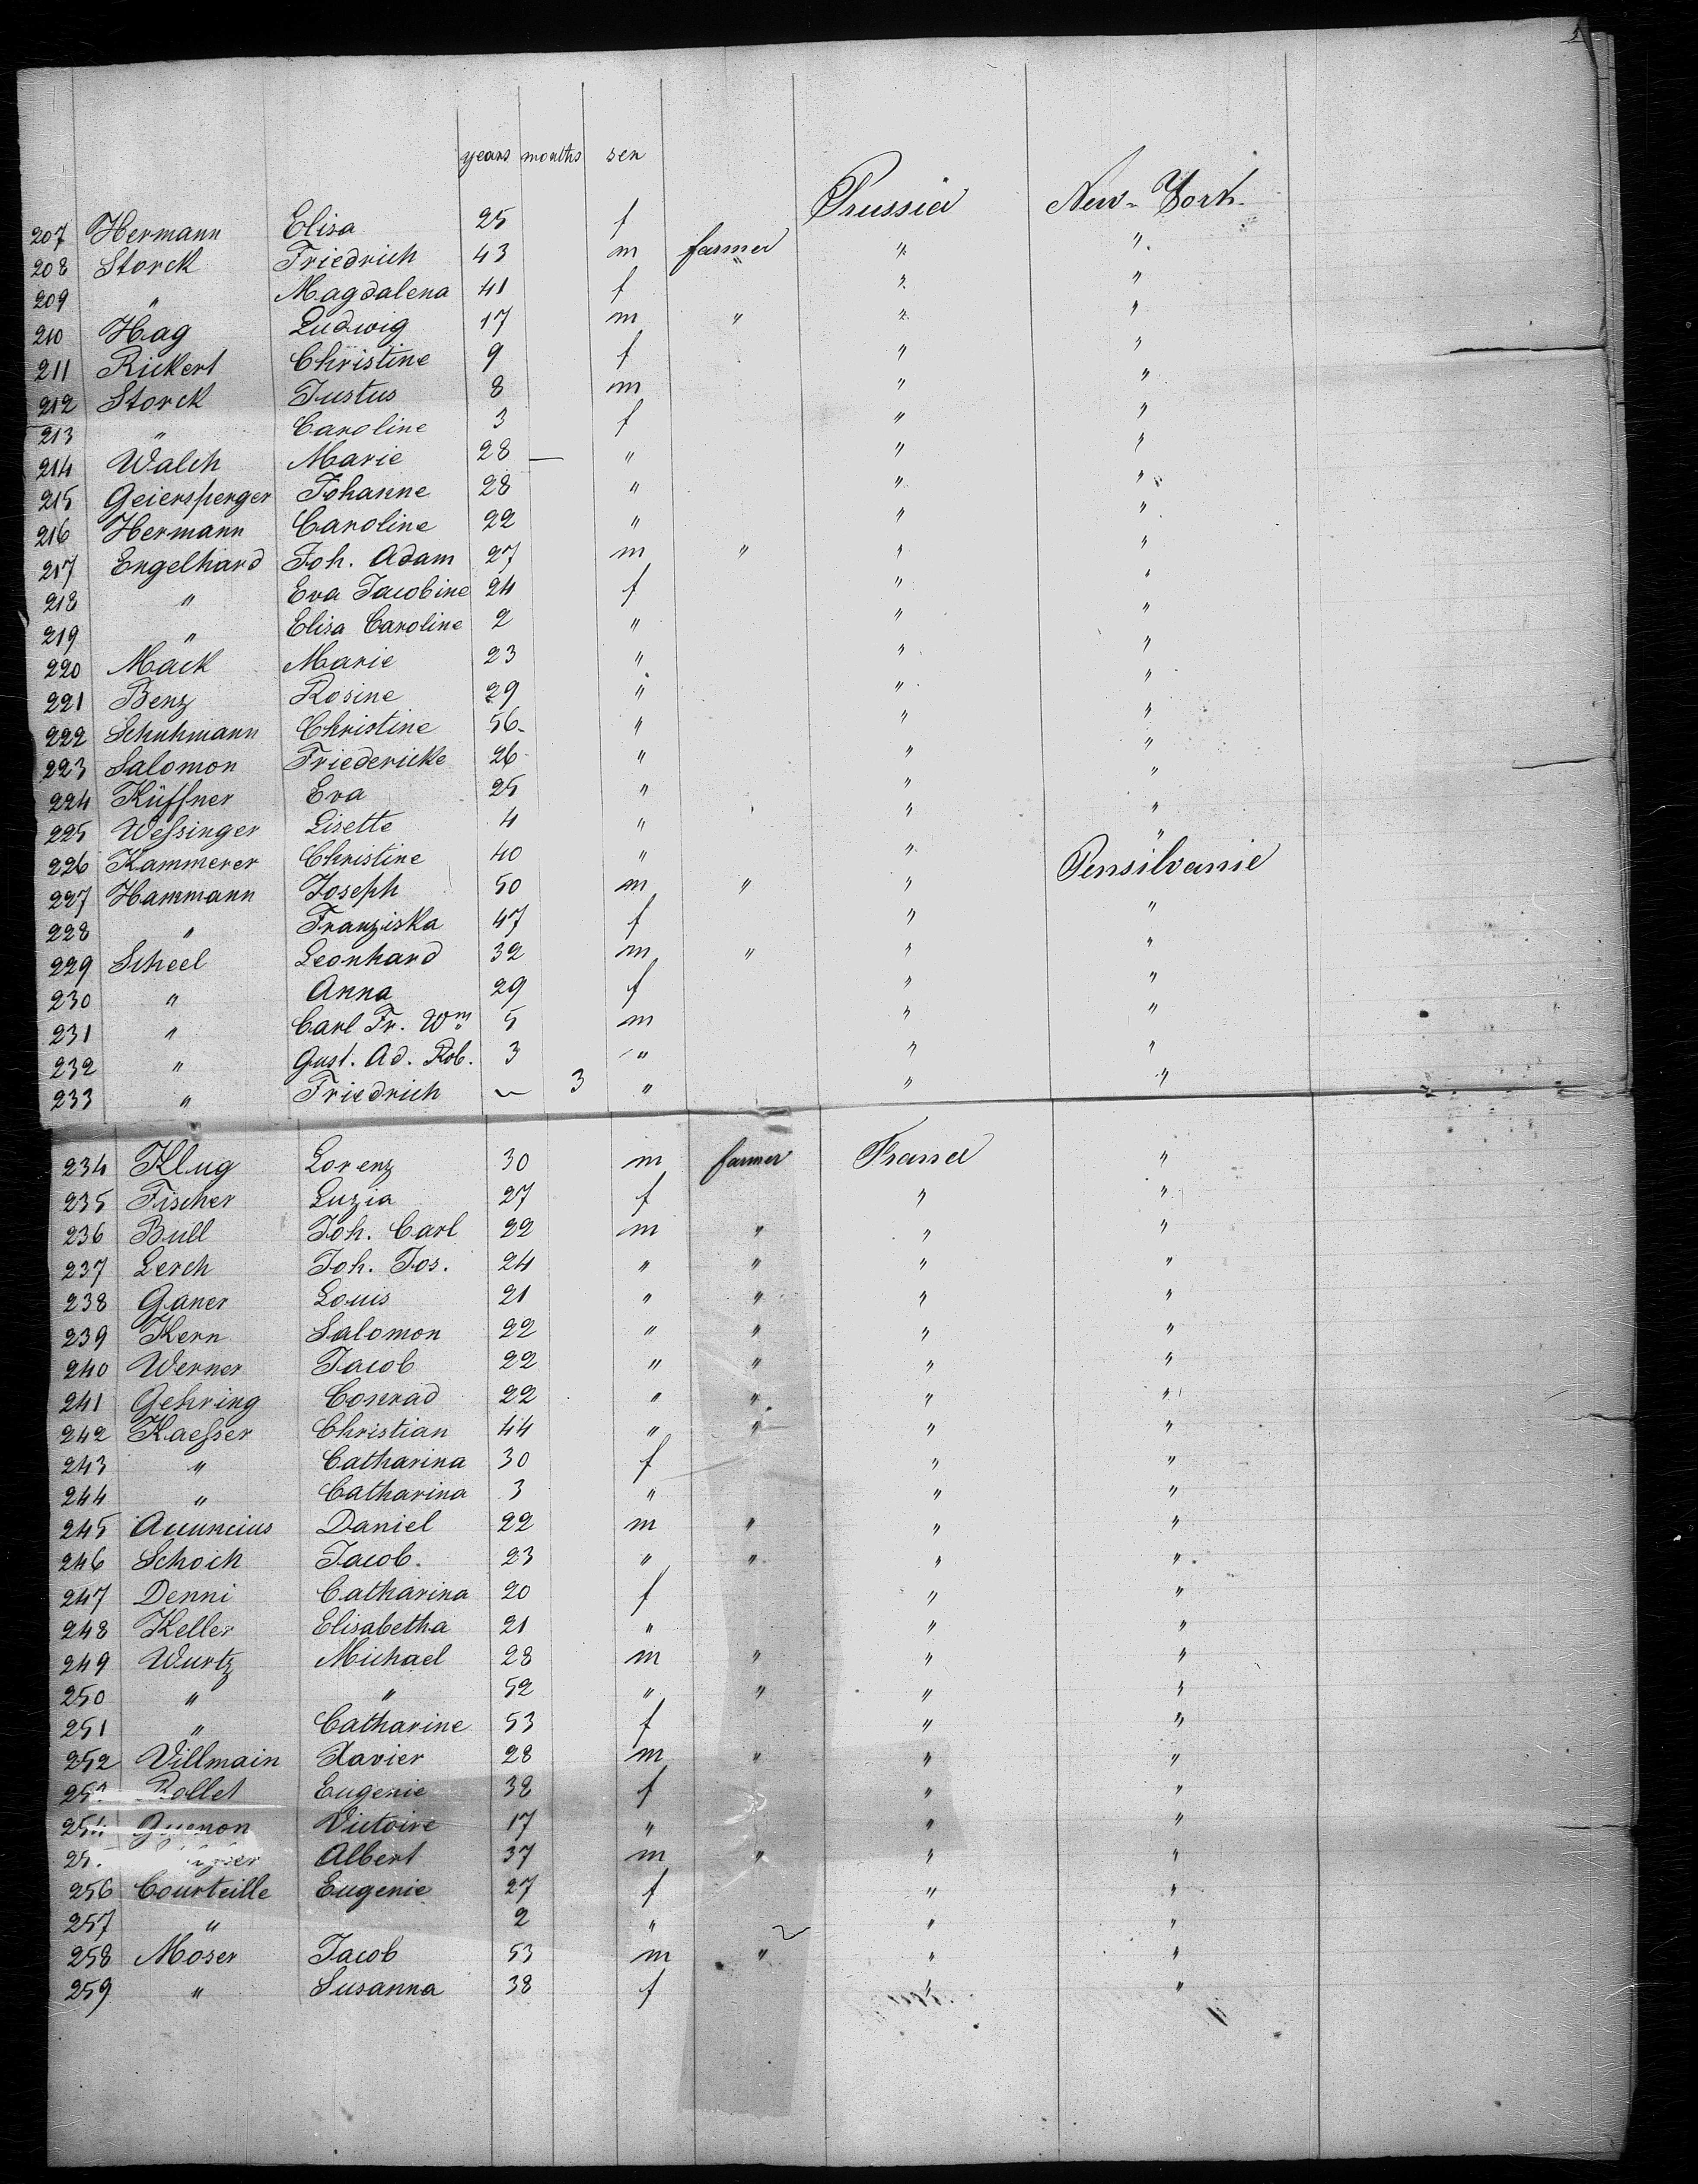 years months sex
207 Hermann Elisa 25 f Prussia New-York
208 Storck Friedrich 43 m farmer " "
209 " Magdalena 41 f " "
210 Hag Ludwig 17 m " " "
211 Rickert Christine 9 f " "
212 Storck Justus 8 m " "
213 " Caroline 3 f " "
214 Walch Marie 28 — " " "
215 Geiersperger Johanne 28 " " "
216 Hermann Caroline 22 " " "
217 Engelhard Joh. Adam 27 m " " "
218 " Eva Jacobine 24 f " "
219 " Elisa Caroline 2 " " "
220 Mack Marie 23 " " "
221 Benz Rosine 29 " " "
222 Schuhmann Christine 56 " " "
223 Salomon Friedericke 26 " " "
224 Küffner Eva 25 " " "
225 Weſsinger Lisette 4 " " "
226 Kammerer Christine 40 " " "
227 Hammann Joseph 50 m " " Pensilvanie
228 " Franziska 47 f " "
229 Scheel Leonhard 32 m " " "
230 " Anna 29 f " "
231 " Carl Fr. Wm 5 m " "
232 " Gust. Ad. Rob. 3 " " "
233 " Friedrich ~ 3 " " "
234 Klug Lorenz 30 m farmer France "
235 Fischer Luzia 27 f " "
236 Bull Joh. Carl 22 m " " "
237 Lerch Joh. Jos. 24 " " " "
238 Ganer Louis 21 " " " "
239 Kern Salomon 22 " " " "
240 Werner Jacob 22 " " " "
241 Gehring Conrad 22 " " " "
242 Kaeſser Christian 44 " " " "
243 " Catharina 30 f " "
244 " Catharina 3 " " "
245 Acuncius Daniel 22 m " " "
246 Schoch Jacob. 23 " " " "
247 Denni Catharina 20 f " "
248 Keller Elisabetha 21 " " "
249 Wurtz Michael 28 m " " "
250 " " 52 " " " "
251 " Catharine 53 f " "
252 Villmain Xavier 28 m " " "
25 Rollet Eugenie 38 f " "
254 Guenon Victoire 17 " " "
25 Albert 37 m " " "
256 Courteille Eugenie 27 f " "
257 " 2 " ~ " "
258 Moser Jacob 53 m " " "
259 " Susanna 38 f " "